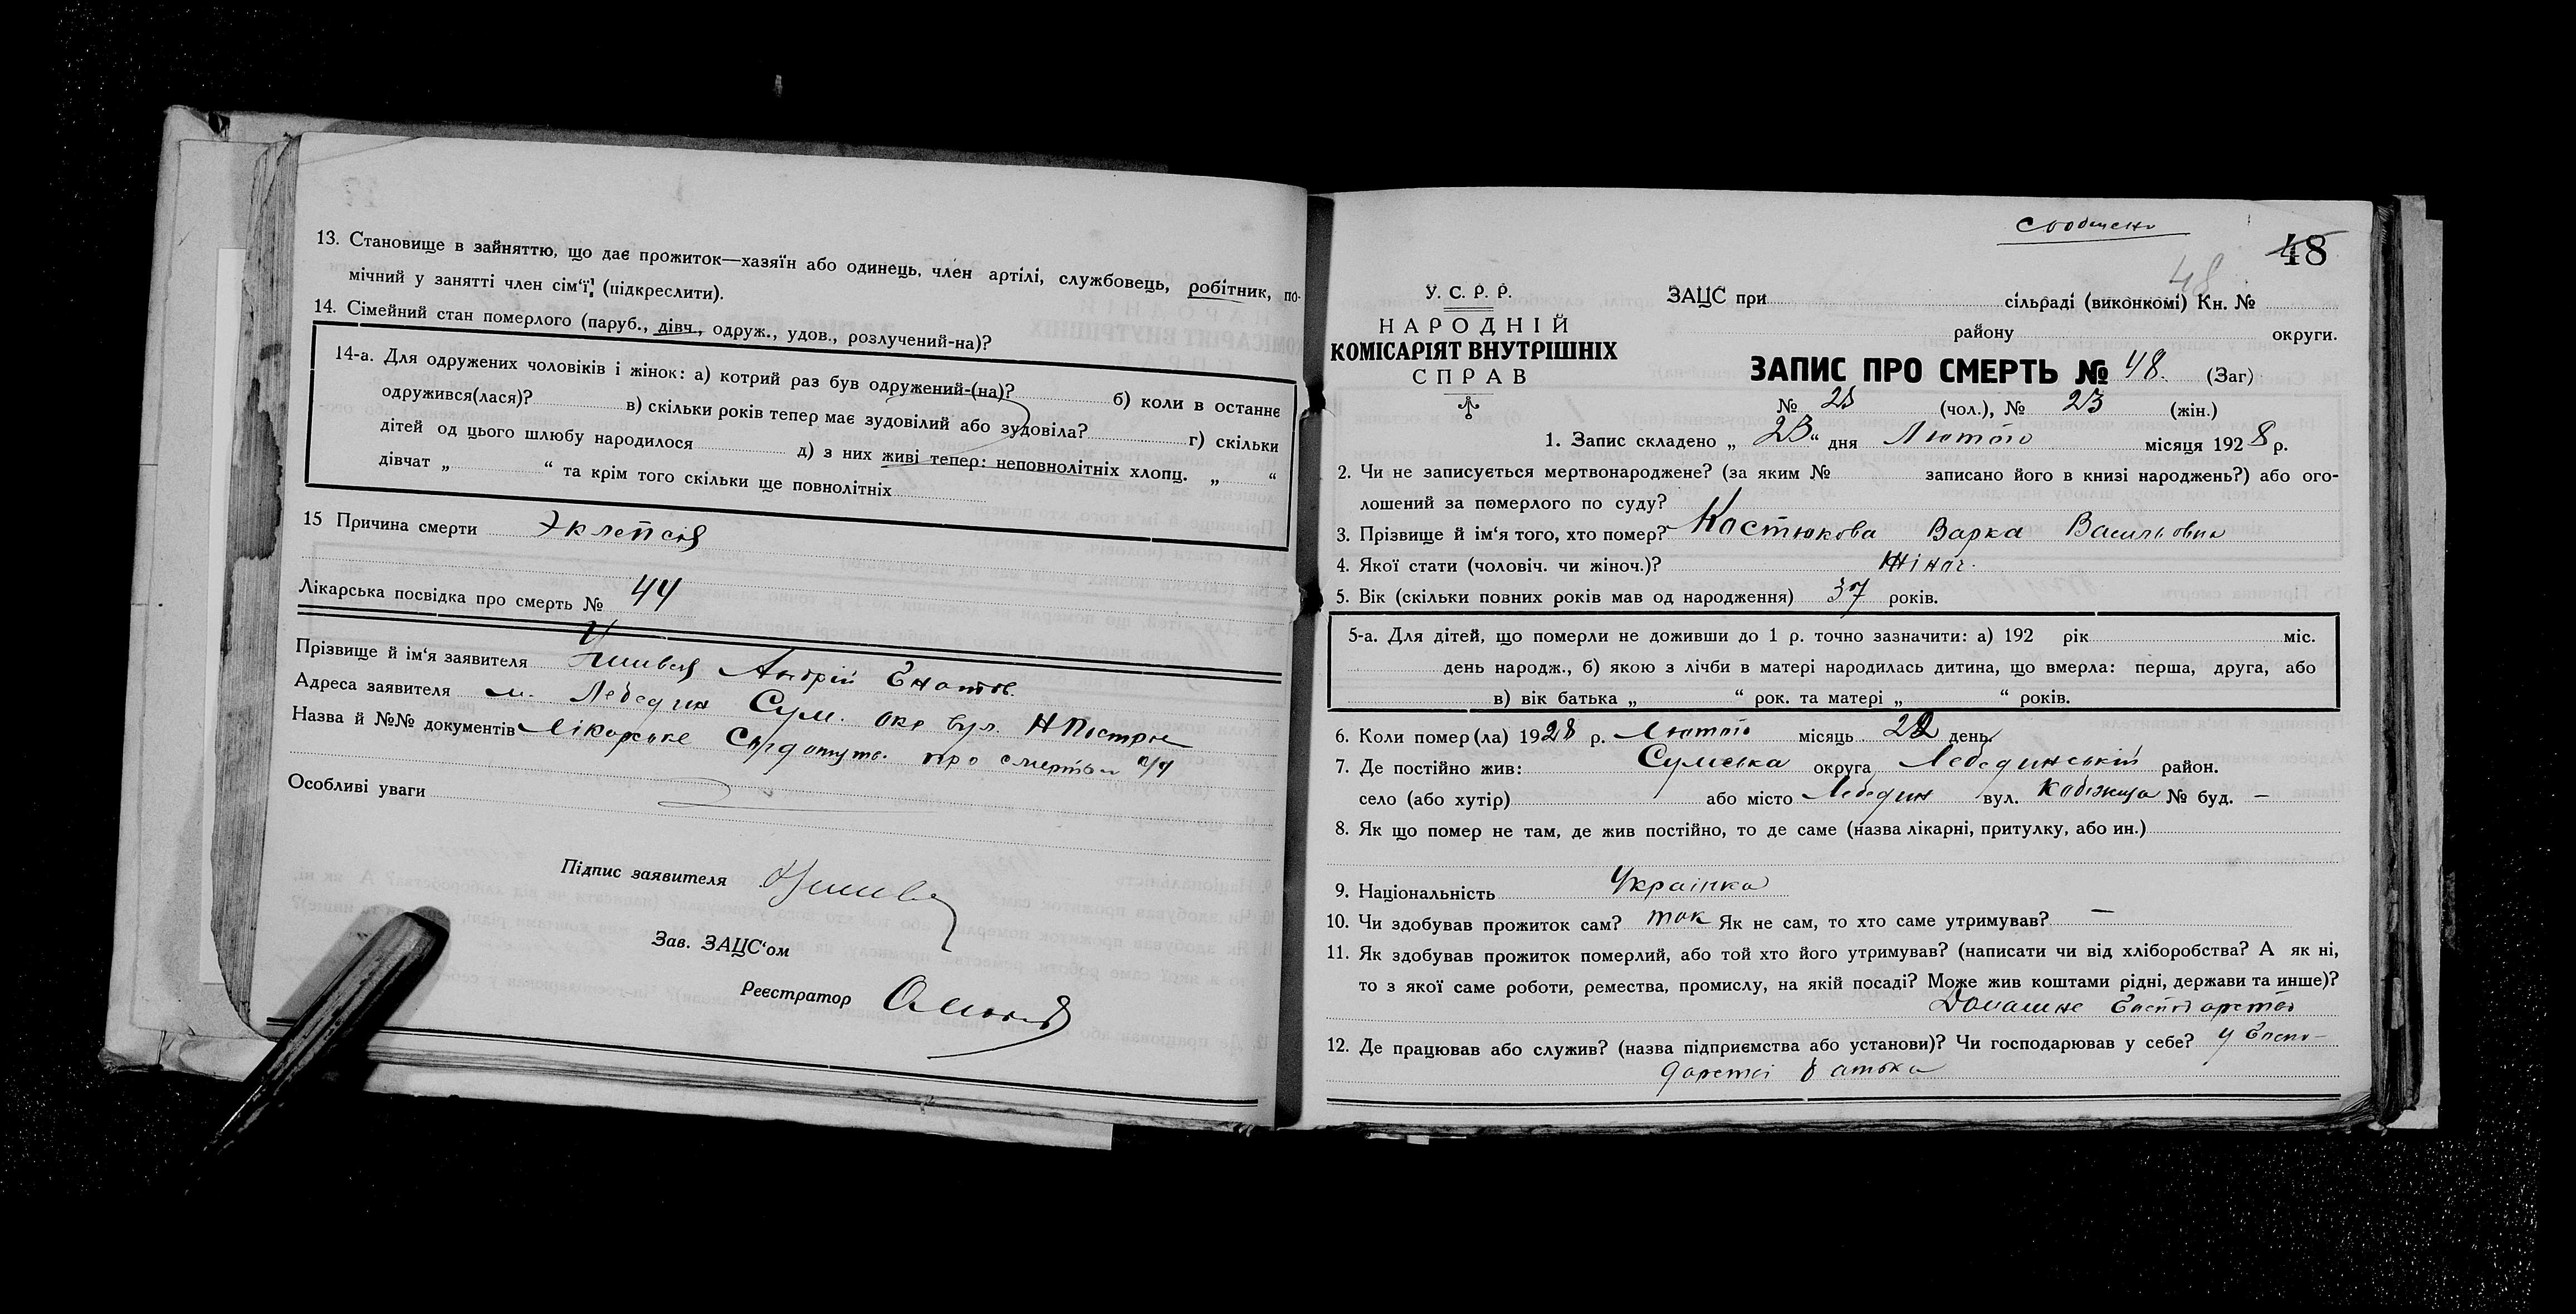 13. Становище в зайняттю, що дає прожиток—хазяїн або одинець, член артілі, службовець, робітник, по-
мічний у занятті член сім‘ї (підкреслити).
14. Сімейний стан померлого (паруб., дівч., одруж., удов., розлучений-на)?
14-а. Для одружених чоловіків і жінок: а) котрий раз був одружений-(на)? б) коли в останнє
одружився(лася)? в) скільки років тепер має зудовілий або зудовіла? г) скільки
дітей од цього шлюбу народилося д) з них живі тепер: неповнолітніх хлопц. „ “
дівчат „ “ та крім того скільки ще повнолітніх
15 Причина смерти Эклепсія
Лікарська посвідка про смерть № 44
Прізвище й ім‘я заявителя Андрій Гнатов.
Адреса заявителя м. Лебедин Сум. окр вул.
Назва й №№ документів Лікарське про смерть
Особливі уваги
Підпис заявителя
Зав. ЗАЦС‘ом
Реєстратор
сообщено
48
48
У. С. Р. Р.
НАРОДНІЙ
КОМІСАРІЯТ ВНУТРІШНІХ
СПРАВ
ЗАЦС при сільраді (виконкомі) Кн. №
району округи.
ЗАПИС ПРО СМЕРТЬ № 48. (Заг)
№ 25 (чол.), № 23 (жін.)
1. Запис складено „ 23 “ дня Лютого місяця 1928 р.
2. Чи не записується мертвонароджене? (за яким № записано його в книзі народжень?) або ого-
лошений за померлого по суду?
3. Прізвище й ім‘я того, хто помер? Костюкова Варка Васильовна
4. Якої стати (чоловіч. чи жіноч.)? Жіноч.
5. Вік (скільки повних років мав од народження) 37 років.
5-а. Для дітей, що померли не доживши до 1 р. точно зазначити: а) 192 рік міс.
день народж., б) якою з лічби в матері народилась дитина, що вмерла: перша, друга, або
в) вік батька „ “ рок. та матері „ “ років.
6. Коли помер(ла) 1928 р. Лютого місяць 22 день.
7. Де постійно жив: Сумська округа Лебединській район.
село (або хутір) або місто Лебедин вул. Кобижща № буд. —
8. Як що помер не там, де жив постійно, то де саме (назва лікарні, притулку, або ин.)
9. Національність Українка
10. Чи здобував прожиток сам? так Як не сам, то хто саме утримував? —
11. Як здобував прожиток померлий, або той хто його утримував? (написати чи від хліборобства? А як ні,
то з якої саме роботи, ремества, промислу, на якій посаді? Може жив коштами рідні, держави та инше)?
Домашне Господарство
12. Де працював або служив? (назва підприємства або установи)? Чи господарював у себе? у Госпо-
дарстві батька